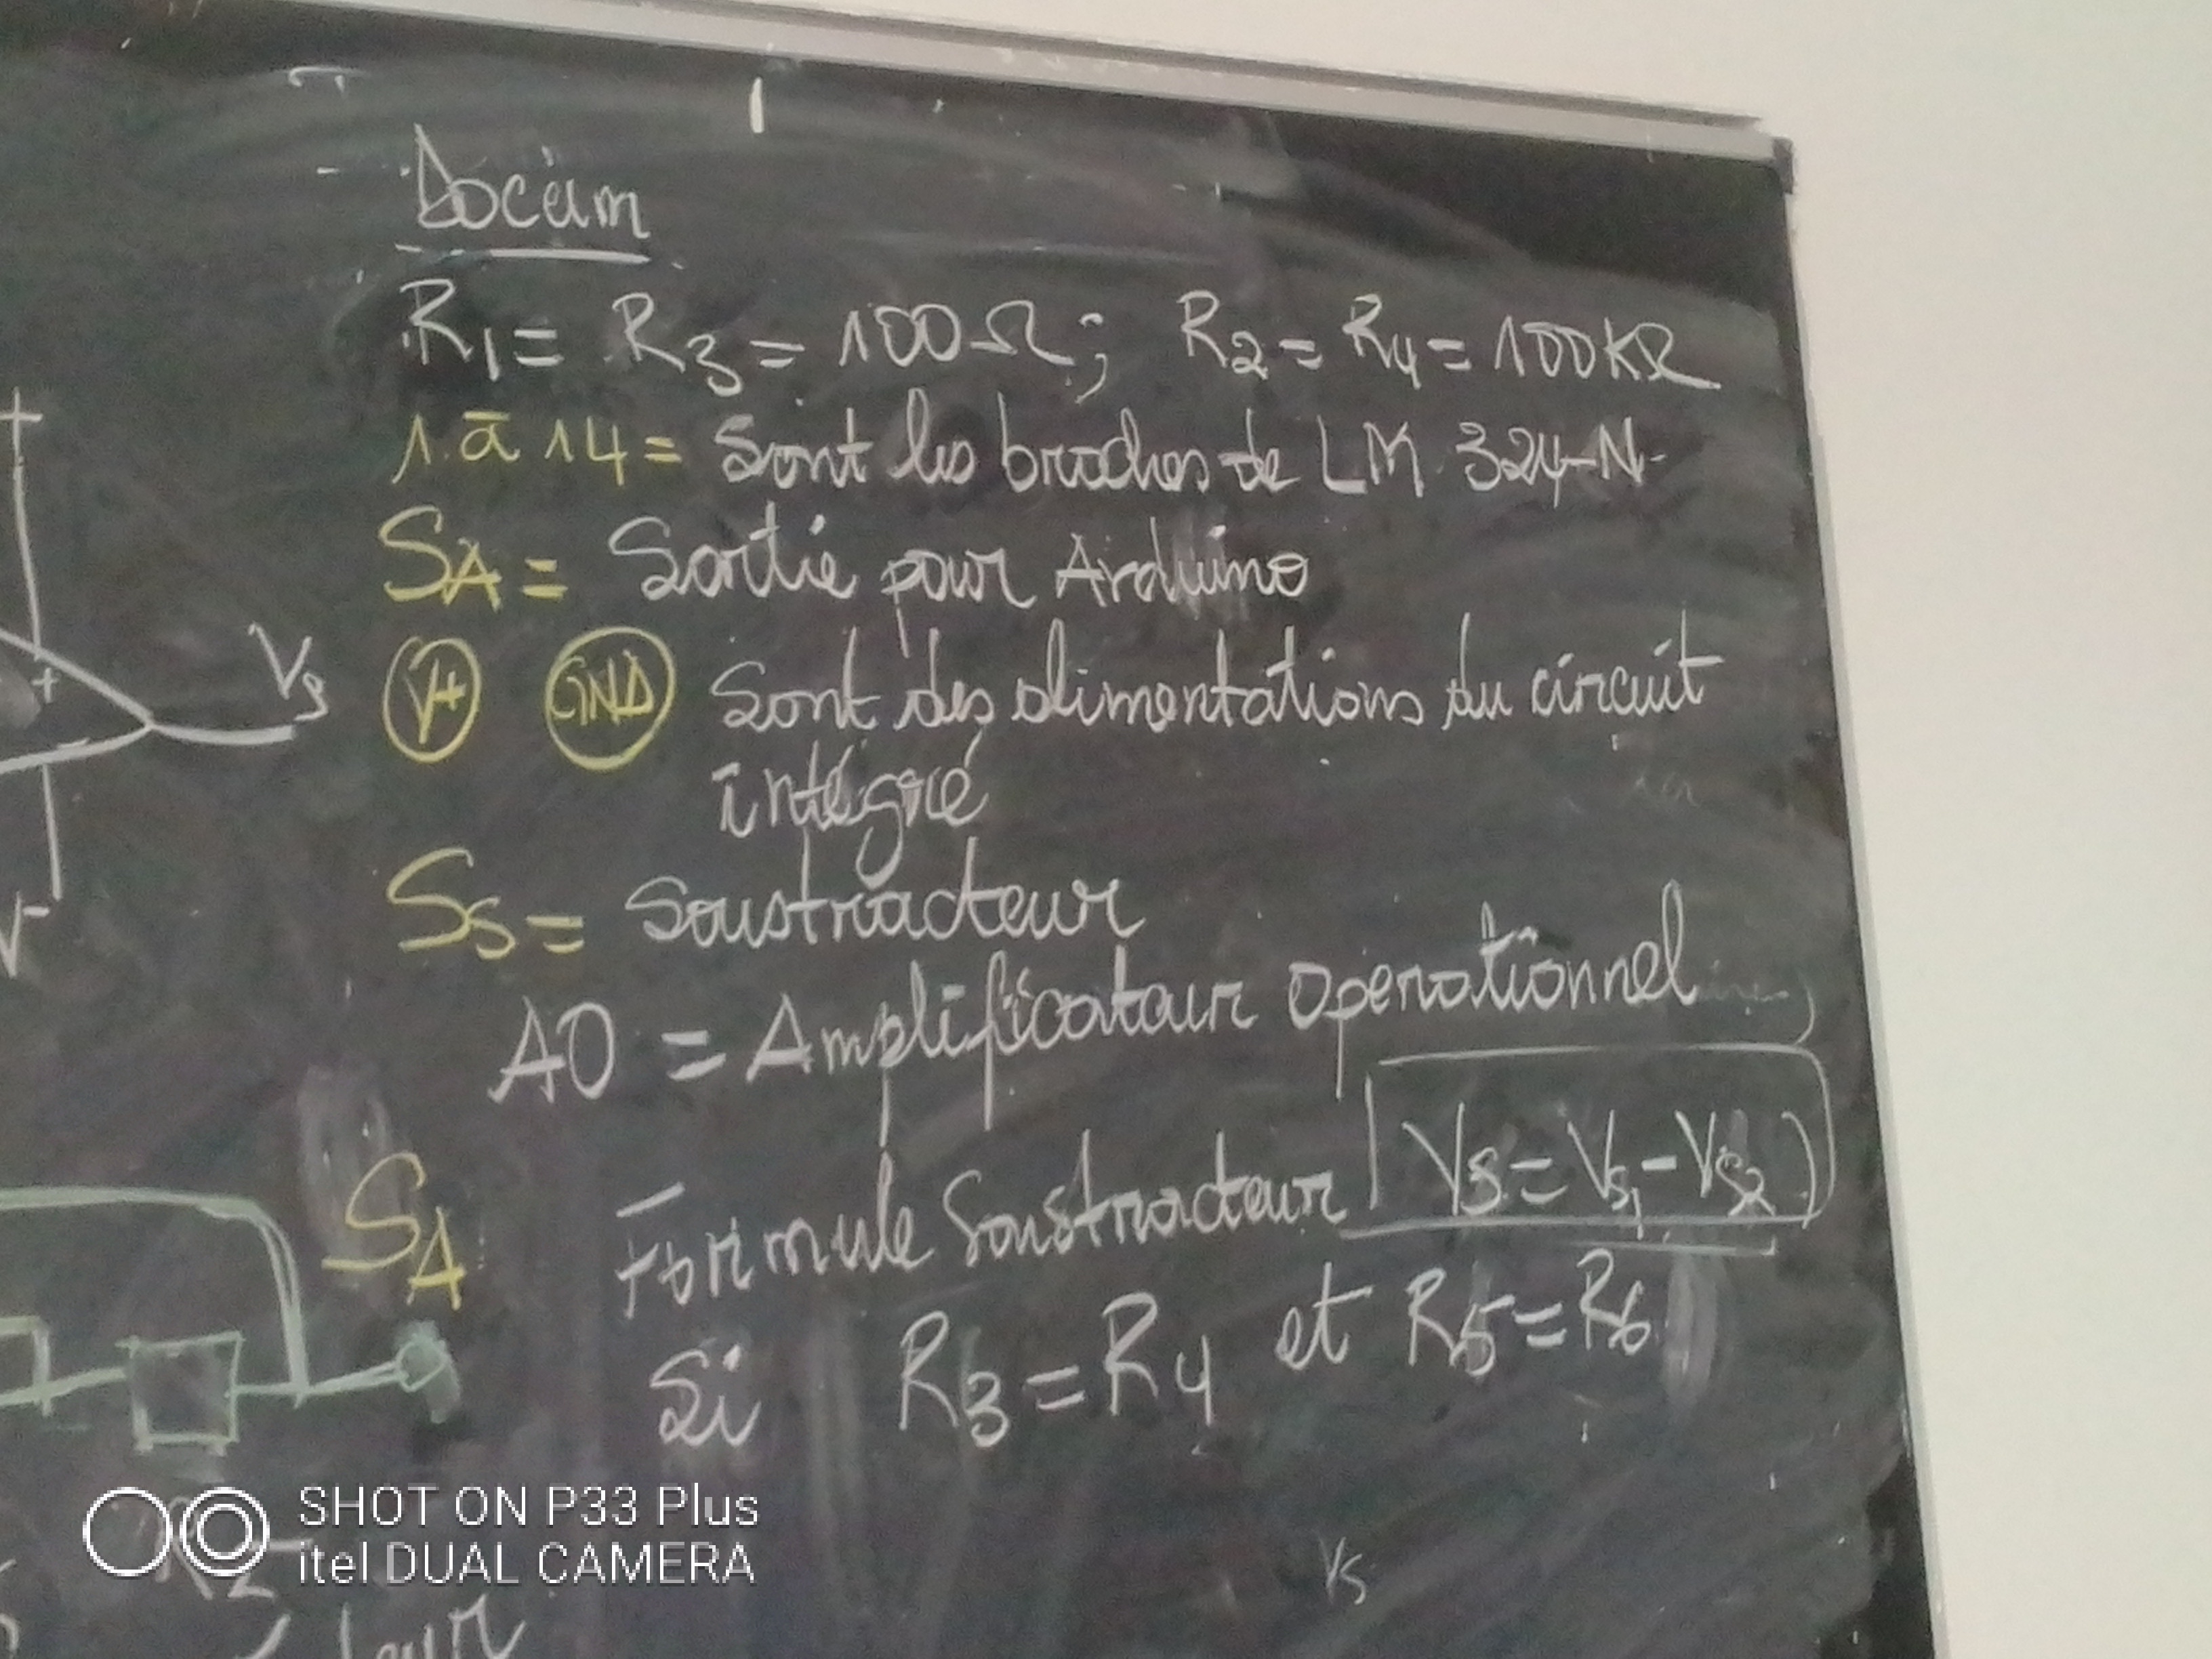 Docam
R1 = R3 = 100Ω ; R2 = R4 = 100KΩ
1 à 14 = Sont les broches de LM 324-N
SA = Sortie pour Arduino
V+ GND Sont des alimentations du circuit
intégré
Vs
SS = Soustracteur
V-
AO = Amplificateur opérationnel
SA Formule Soustracteur VS = VS1 - VS2
Si R3 = R4 et R5 = R6
SHOT ON P33 Plus
itel DUAL CAMERA
VS